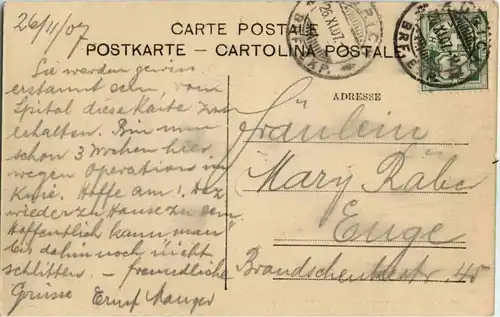 26/11/07
CARTE POSTALE
POSTKARTE - CARTOLINA POSTALE
26.XI.07
ADRESSE
Sie werden gewiss
erstaunt sein, vom
Spital diese Karte zu
erhalten. Bin nun
schon 3 Wochen hier
wegen Operation im
Knie. Hoffe am 1. Dez
wieder zu Hause zu sein
Hoffentlich kann man
bis dahin noch nicht
schlitten. - freundliche
Grüsse Ernst
Fräulein
Mary Räber
Enge
Brandschenkestr. 45